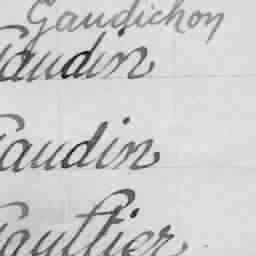 Gaudichon
Gaudin
Gaudin
Gaultier